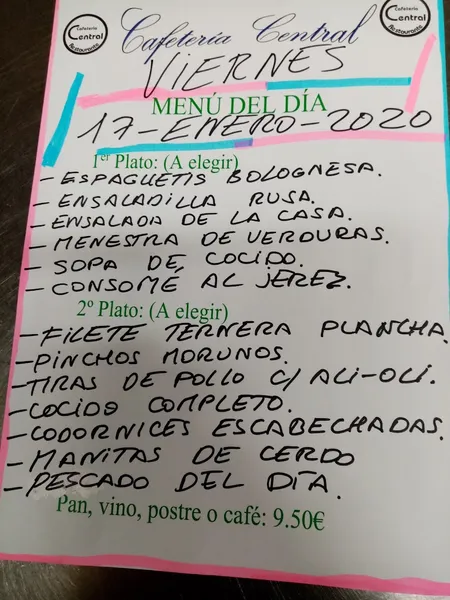 Cafetería
Central
Restaurante
Cafetería Central
Cafetería
Central
Restaurante
VIERNES
MENÚ DEL DÍA
17-ENERO-2020
1er Plato: (A elegir)
- ESPAGUETIS BOLOGNESA.
- ENSALADILLA RUSA.
- ENSALADA DE LA CASA.
- MENESTRA DE VERDURAS.
- SOPA DE COCIDO.
- CONSOMÉ AL JEREZ.
2º Plato: (A elegir)
- FILETE TERNERA PLANCHA.
- PINCHOS MORUNOS.
- TIRAS DE POLLO C/ ALI-OLI.
- COCIDO COMPLETO.
- CODORNICES ESCABECHADAS.
- MANITAS DE CERDO
- PESCADO DEL DÍA.
Pan, vino, postre o café: 9.50€